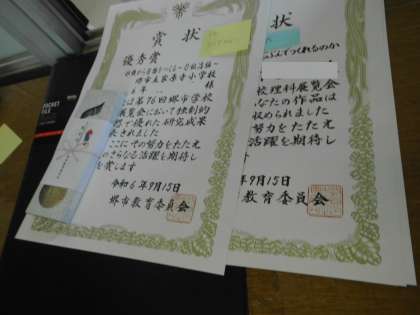 賞状
優秀賞
堺市立家原寺小学校
年
様
は第76回堺市学校
展覧会において独創的
で優れた研究成果
されました
ここにその努力をたたえ
のさらなる活躍を期待し
を賞します
令和6年9月15日
堺市教育委員会
状
つくれるのか
校理科展覧会
なたの作品は
収められました
努力をたたえ
活躍を期待し
年9月15日
教育委員会
POCKET
FILE